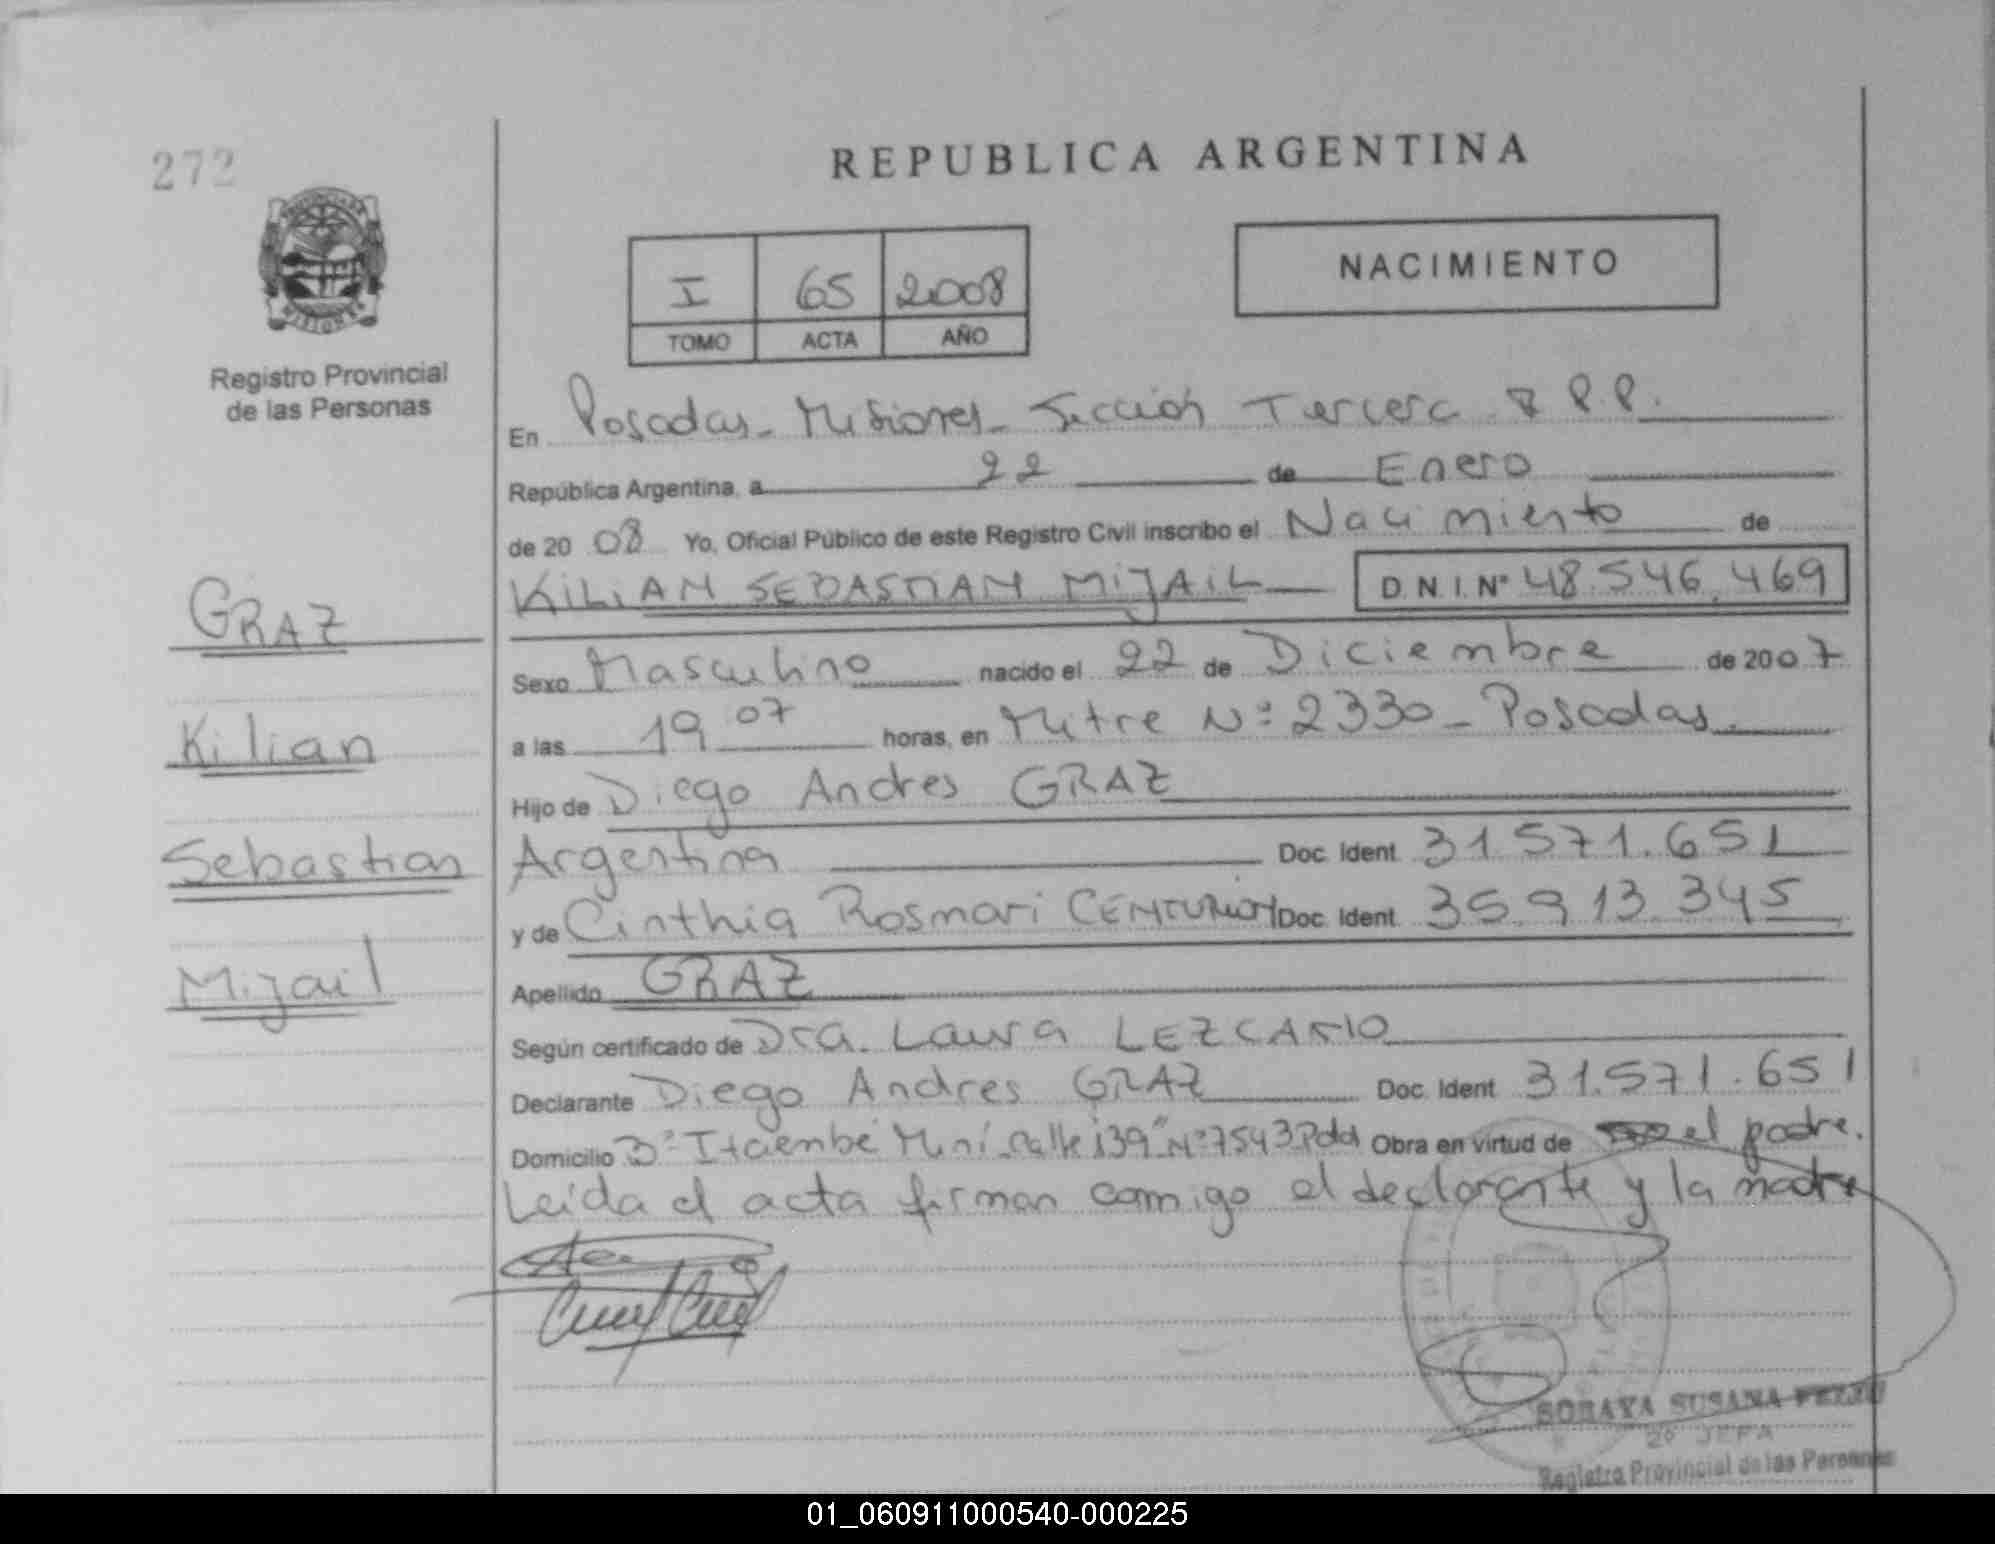 272
REPUBLICA ARGENTINA
NACIMIENTO
I 65 2008
TOMO ACTA AÑO
Registro Provincial
de las Personas
En Posadas - Misiones - Sección Tercera R.P.P.
República Argentina, a 22 de Enero
de 20 08 Yo, Oficial Público de este Registro Civil inscribo el Nacimiento de
KILIAN SEBASTIAN MIJAIL D.N.I.Nº 48.546.469
GRAZ
Sexo Masculino nacido el 22 de Diciembre de 2007
Kilian
a las 19 07 horas, en Mitre Nº 2330 - Posadas.
Hijo de Diego Andres GRAZ
Sebastian
Argentina Doc. Ident. 31.571.651
y de Cinthia Rosmari CENTURION Doc. Ident. 35.913.345
Mijail
Apellido GRAZ
Según certificado de Dra. Laura LEZCANO
Declarante Diego Andres GRAZ Doc. Ident. 31.571.651
Domicilio Bº Itaembé Miní Calle 139 Nº 7543 Pdas Obra en virtud de el padre.
Leída el acta firman comigo el declarante y la madre
SORAYA SUSANA
2º JEFA
Registro Provincial de las Personas
01_060911000540-000225